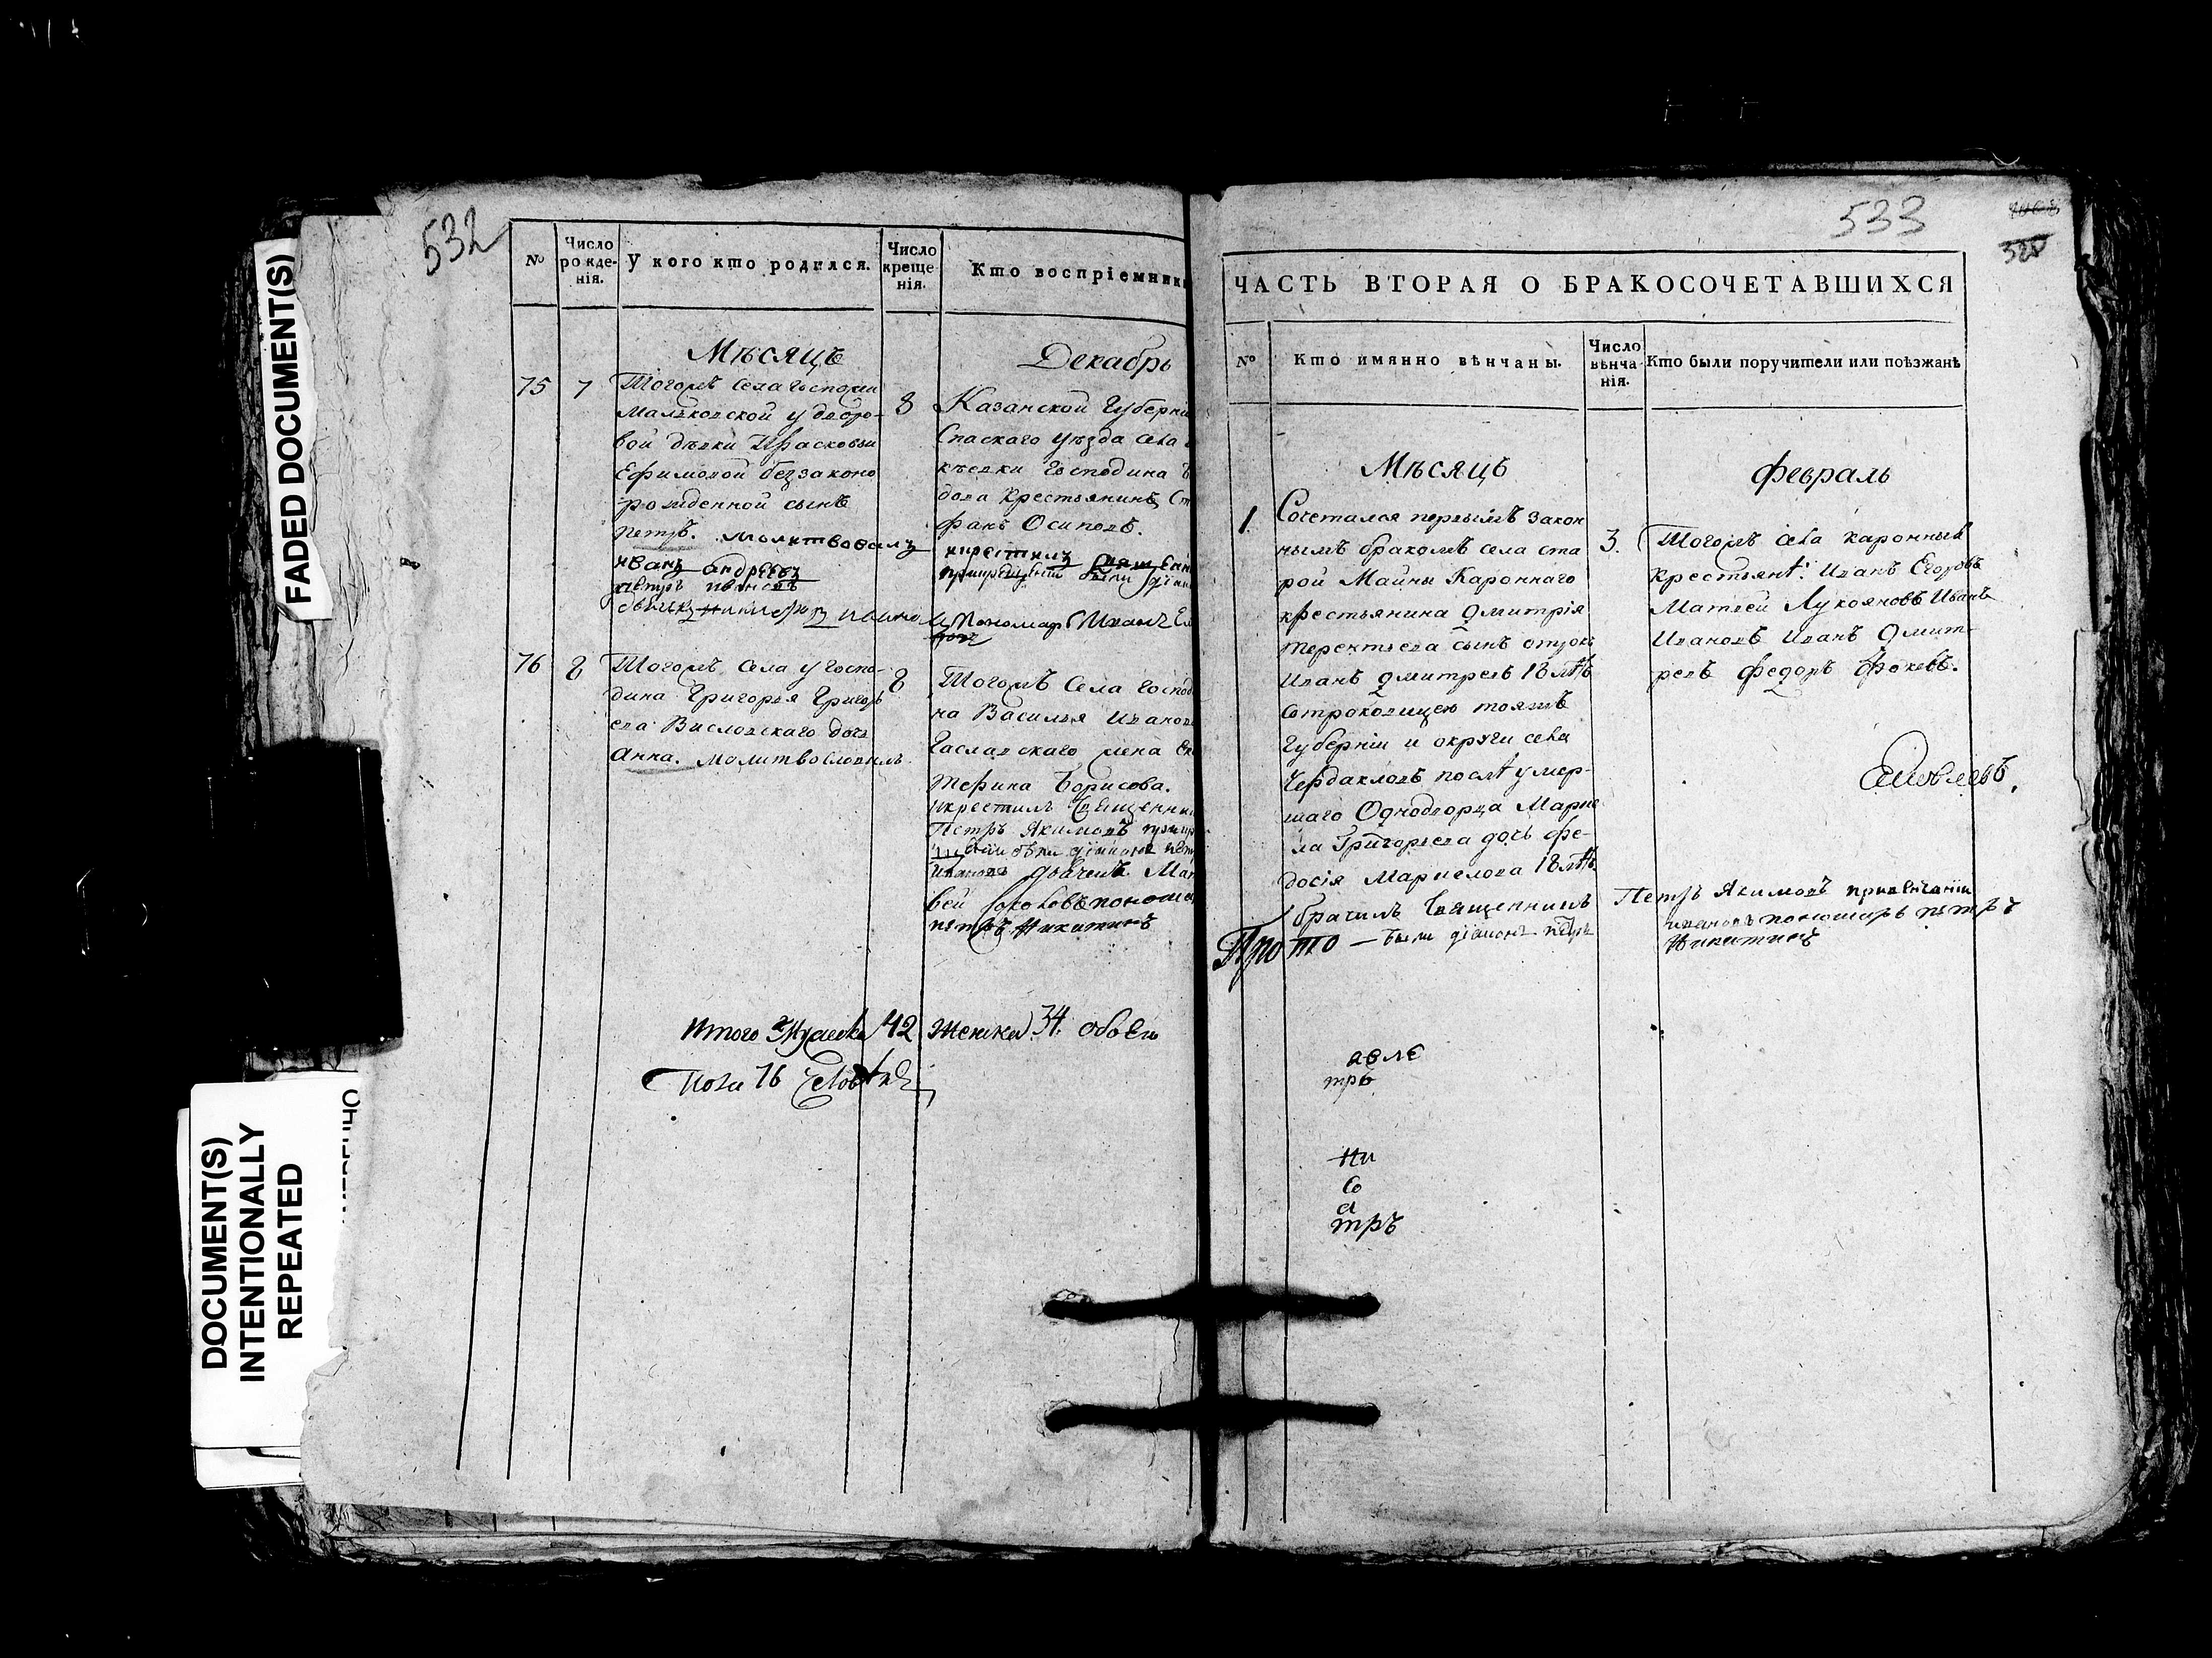 FADED DOCUMENT(S)
DOCUMENT(S)
INTENTIONALLY
REPEATED
532
№
Число рожде-нія.
У кого кто родился.
Число креще-нія.
Кто воспріемники
Мѣсяцъ
Декабрь
75
7
Тогожъ села госпожи
Мальковской у дворо-
вой дѣвки Прасковьи
Ефимовой беззаконо
рожденной сынъ
Петръ. молитвовалъ
иванъ андреевъ
петръ ивановъ
8
Казанской Губерніи
Спаскаго уѣзда села
господина
крестьянинъ Сте
фанъ Осиповъ.
крестилъ
были
Пономар Иванъ
76
8
Тогожъ села у госпо-
дина Григорья Григорь
ева Висловскаго дочь
Анна. молитвословилъ
8
Тогожъ села господи
на Василья Иванов
жена Ека
терина Борисова.
крестилъ Священни
Петръ Якимовъ при
были діаконъ петръ
Ивановъ дьячекъ Мат
вей Соколовъ поном
петръ Никитинъ
Итого Мужеска 42 женска 34. обоего
пола 76 человѣкъ
533
ЧАСТЬ ВТОРАЯ О БРАКОСОЧЕТАВШИХСЯ
№
Кто имянно вѣнчаны.
Число вѣнча-нія.
Кто были поручители или поѣзжанѣ
Мѣсяцъ
февраль
1.
Сочетался первымъ закон
нымъ бракомъ села ста
рой Майны Каронного
крестьянина Дмитрія
Терентьева сынъ отрокъ
Иванъ Дмитревъ 18 лѣтъ
сотроковицею тояжъ
Губерніи и округи села
Чердакловъ послѣ умер-
шаго Однодворца Марке
ла Григорьева дочь фе-
досія Маркелова 18 лѣтъ
брачилъ Священникъ
Прото — были діаконъ петръ
3.
Тогожъ села каронныя
крестьянѣ: Иванъ Егоровъ
Матвей Лукояновъ Иванъ
Ивановъ Иванъ Дмит-
ревъ федоръ фокевъ.
Петръ Якимовъ привѣнчаніи
ивановъ пономарь петръ
Никитинъ
авле
тръ
Ни
Со
а
тръ